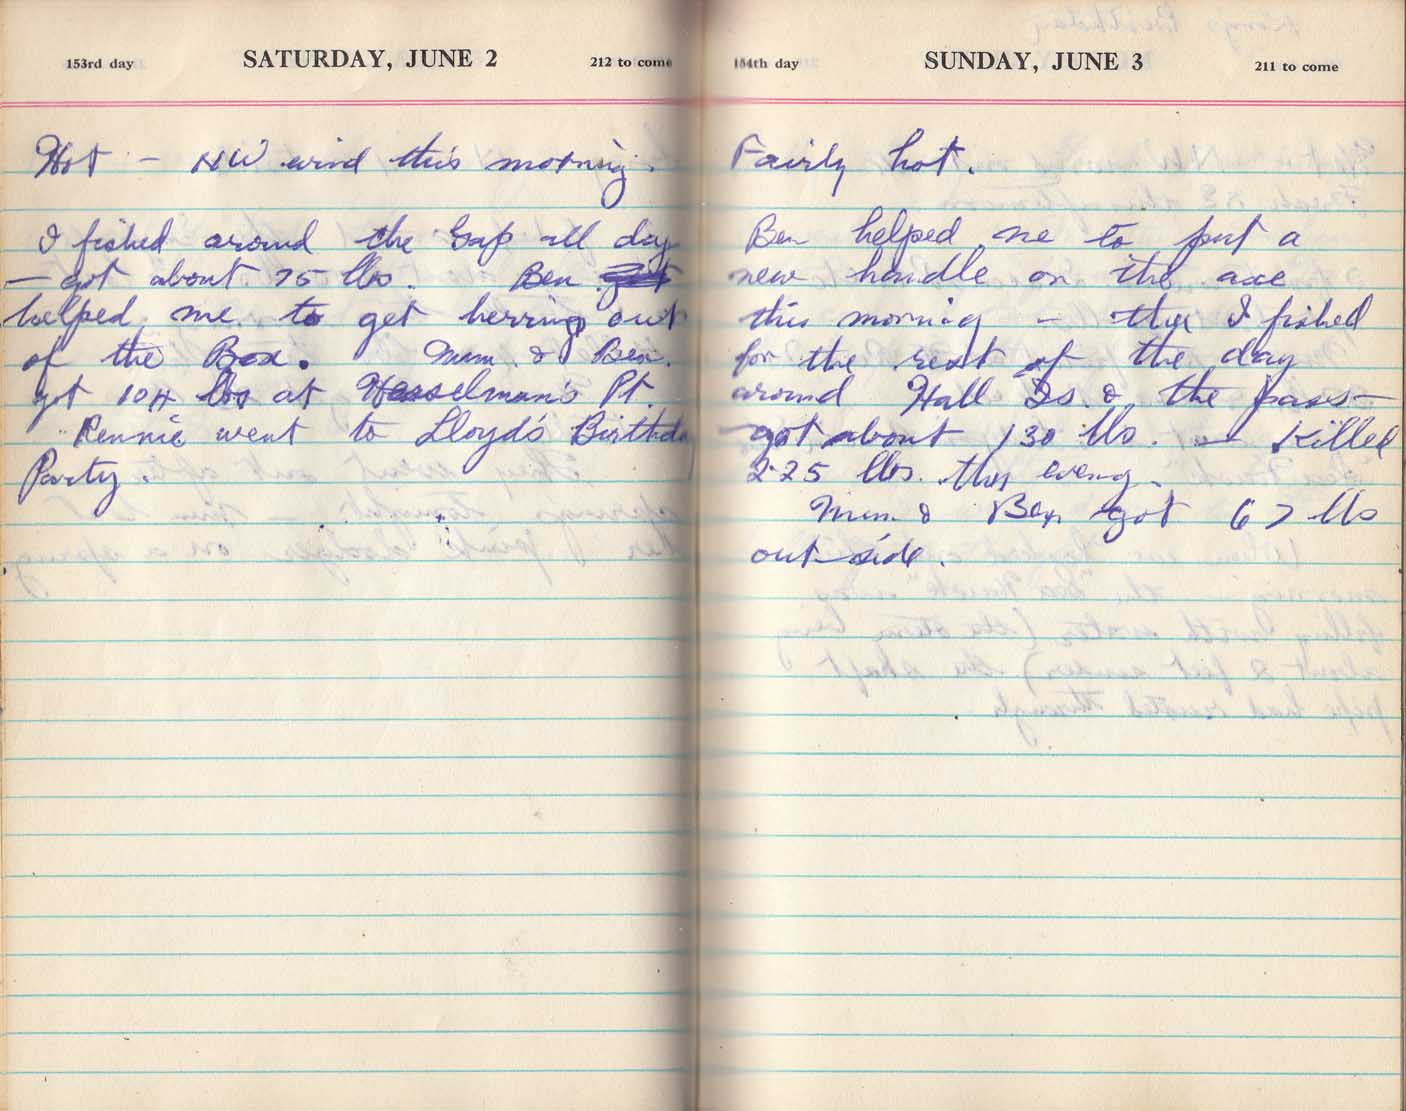 153rd day SATURDAY, JUNE 2 212 to come
Hot - NW wind this morning.
I fished around the Gap all day
- got about 75 lbs. Ben
helped me to get herring out
of the Box. Mum & Ben
got 104 lbs at Hesselman's Pt.
Rennie went to Lloyd's Birthday
Party.
154th day SUNDAY, JUNE 3 211 to come
Fairly hot.
Ben helped me to put a
new handle on the axe
this morning - then I fished
for the rest of the day
around Hall Is. & the pass -
got about 130 lbs. - Killed
225 lbs. this eveng.
Mum & Ben got 67 lbs
outside.